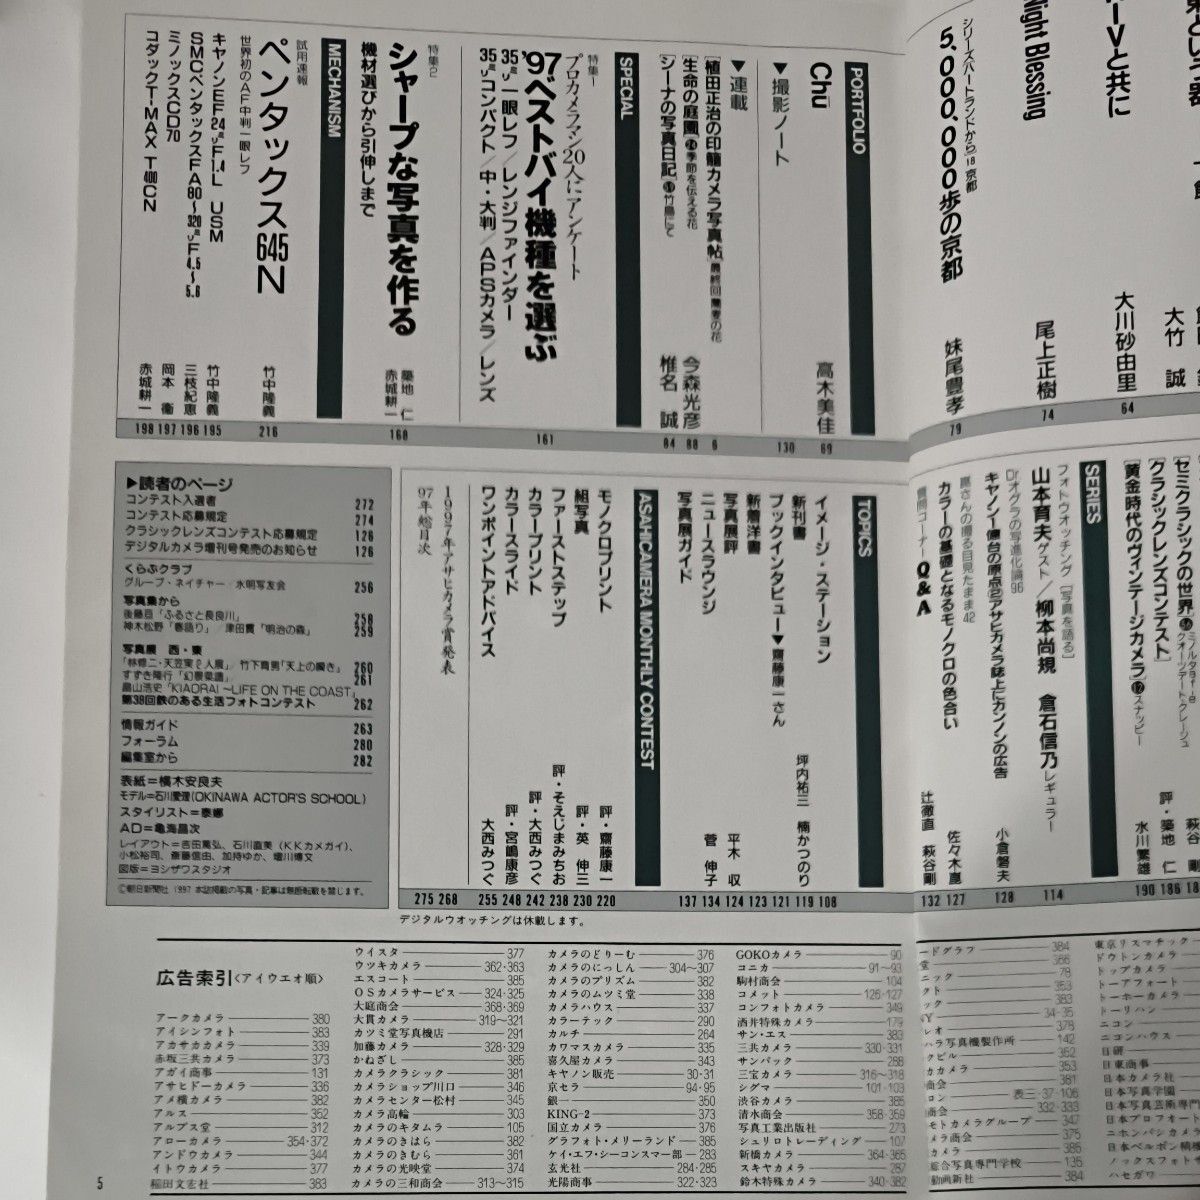 PORTFOLIO
5,000,000歩の京都
妹尾豊孝
79
尾上正樹
74
大川砂由里
64
大竹 誠
Chū
高木美佳
69
▼撮影ノート
130
▼連載
[植田正治の印籠カメラ写真帖]最終回 蕎麦の花
6
[生命の庭園]24季節を伝える花
今森光彦
88
[シーナの写真日記]
椎名 誠
84
SPECIAL
特集1
プロカメラマン20人にアンケート
'97ベストバイ機種を選ぶ
35ミリ一眼レフ/レンジファインダー
35ミリコンパクト/中・大判/APSカメラ/レンズ
161
特集2
シャープな写真を作る
機材選びから引伸しまで
築地 仁
赤城耕一
168
MECHANISM
試用速報
世界初のAF中判一眼レフ
ペンタックス645N
竹中隆義
216
キヤノンEF24ミリF1.4L USM
竹中隆義
195
SMCペンタックスFA80〜320ミリF4.5〜5.6
三枝紀恵
196
ミノックスCD70
岡本 衛
197
コダックT-MAX T400CN
赤城耕一
198
[セミクラシックの世界]
[クラシックレンズコンテスト]
評・築地 仁
186
[黄金時代のヴィンテージカメラ]12スナッピー
水川繁雄
190
SERIES
フォトウオッチング[写真を語る]
山本育夫ゲスト/柳本尚規 倉石信乃レギュラー
114
Drオグラの写進化論96
キヤノン1億台の原点②アサヒカメラ誌上にカンノンの広告
小倉磐夫
128
嵐さんの撮る目見たまま42
カラーの基礎となるモノクロの色合い
127
質問コーナーQ&A
辻徹直 萩谷剛
132
TOPICS
イメージ・ステーション
108
新刊書
坪内祐三 楠かつのり
119
ブックインタビュー▼齋藤康一さん
121
新着洋書
123
写真展評
平木 収
124
ニュースラウンジ
菅 伸子
134
写真展ガイド
137
ASAHICAMERA MONTHLY CONTEST
モノクロプリント
評・齋藤康一
220
組写真
評・英 伸三
230
ファーストステップ
評・そえじまみちお
238
カラープリント
評・大西みつぐ
242
カラースライド
評・宮嶋康彦
248
ワンポイントアドバイス
大西みつぐ
255
1997年アサヒカメラ賞発表
268
97年総目次
275
デジタルウオッチングは休載します。
▶読者のページ
コンテスト入選者 272
コンテスト応募規定 274
クラシックレンズコンテスト応募規定 126
デジタルカメラ増刊号発売のお知らせ 126
くらぶクラブ
グループ・ネイチャー/水明写友会 256
写真集から
後藤亘「ふるさと長良川」 258
神木松野「春語り」/津田貫「明治の森」 259
写真展 西・東
「林修二・天笠実2人展」/竹下育男「天上の瞬き」 260
すずき隆行「幻景楽譜」 261
畠山浩史「KIAORA! ~LIFE ON THE COAST」
第38回鉄のある生活フォトコンテスト 262
情報ガイド 263
フォーラム 280
編集室から 282
表紙=橘木安良夫
モデル=石川愛理(OKINAWA ACTOR'S SCHOOL)
スタイリスト=泰娜
AD=亀海昌次
レイアウト=吉田篤弘、石川直美(KKカメガイ)、
小松裕司、斎藤信由、加持ゆか、増川博文
図版=ヨシザワスタジオ
©朝日新聞社 1997 本誌掲載の写真・記事は無断転載を禁じます。
広告索引〈アイウエオ順〉
アークカメラ 380
アイシンフォト 383
アカサカカメラ 339
赤坂三共カメラ 373
アガイ商事 131
アサヒドーカメラ 336
アメ横カメラ 382
アルス 352
アルプス堂 312
アローカメラ 354・372
アンドウカメラ 344
イトウカメラ 377
稲田文宏社 383
ウイスタ 377
ウツキカメラ 362・363
エスコート 385
OSカメラサービス 324・325
大庭商会 368・369
大貫カメラ 319〜321
カツミ堂写真機店 291
加藤カメラ 328・329
かねざし 385
カメラクラシック 381
カメラショップ川口 346
カメラセンター松村 345
カメラ高輪 303
カメラのキタムラ 105
カメラのきはら 382
カメラのきむら 361
カメラの光映堂 374
カメラの三和商会 313〜315
カメラのどりーむ 376
カメラのにっしん 304〜307
カメラのプリズム 382
カメラのムツミ堂 338
カメラハウス 337
カラーテック 290
カルチ 264
カワマスカメラ 335
喜久屋カメラ 343
キヤノン販売 30・31
京セラ 94・95
銀一 350
KING-2 373
国立カメラ 376
グラフォト・メリーランド 385
ケイ・エフ・シーコンスマー部 283
玄光社 284・285
光陽商事 322・323
GOKOカメラ 90
コニカ 91〜93
駒村商会 104
コメット 126・127
コンフォトカメラ 349
酒井特殊カメラ 179
サン・エス 383
三共カメラ 330・331
サンパック 288
三宝カメラ 316〜318
シグマ 101・103
渋谷カメラ 385
清水商会 358・359
写真工業出版社 273
シュリロトレーディング 107
新橋カメラ 364・365
スキヤカメラ 287
鈴木特殊カメラ 340・382
東京リスマチック
ドウトンカメラ
トップカメラ
トーアフォート
トーホーカメラ
トーリハン
ニコン
ニコンハウス
日研
日東商事
日本カメラ社
日本写真学園
日本写真芸術専門
日本プロフォート
ニホンバシカメラ
日本ベルボン精機
ノックスフォト
ハセガワ
5